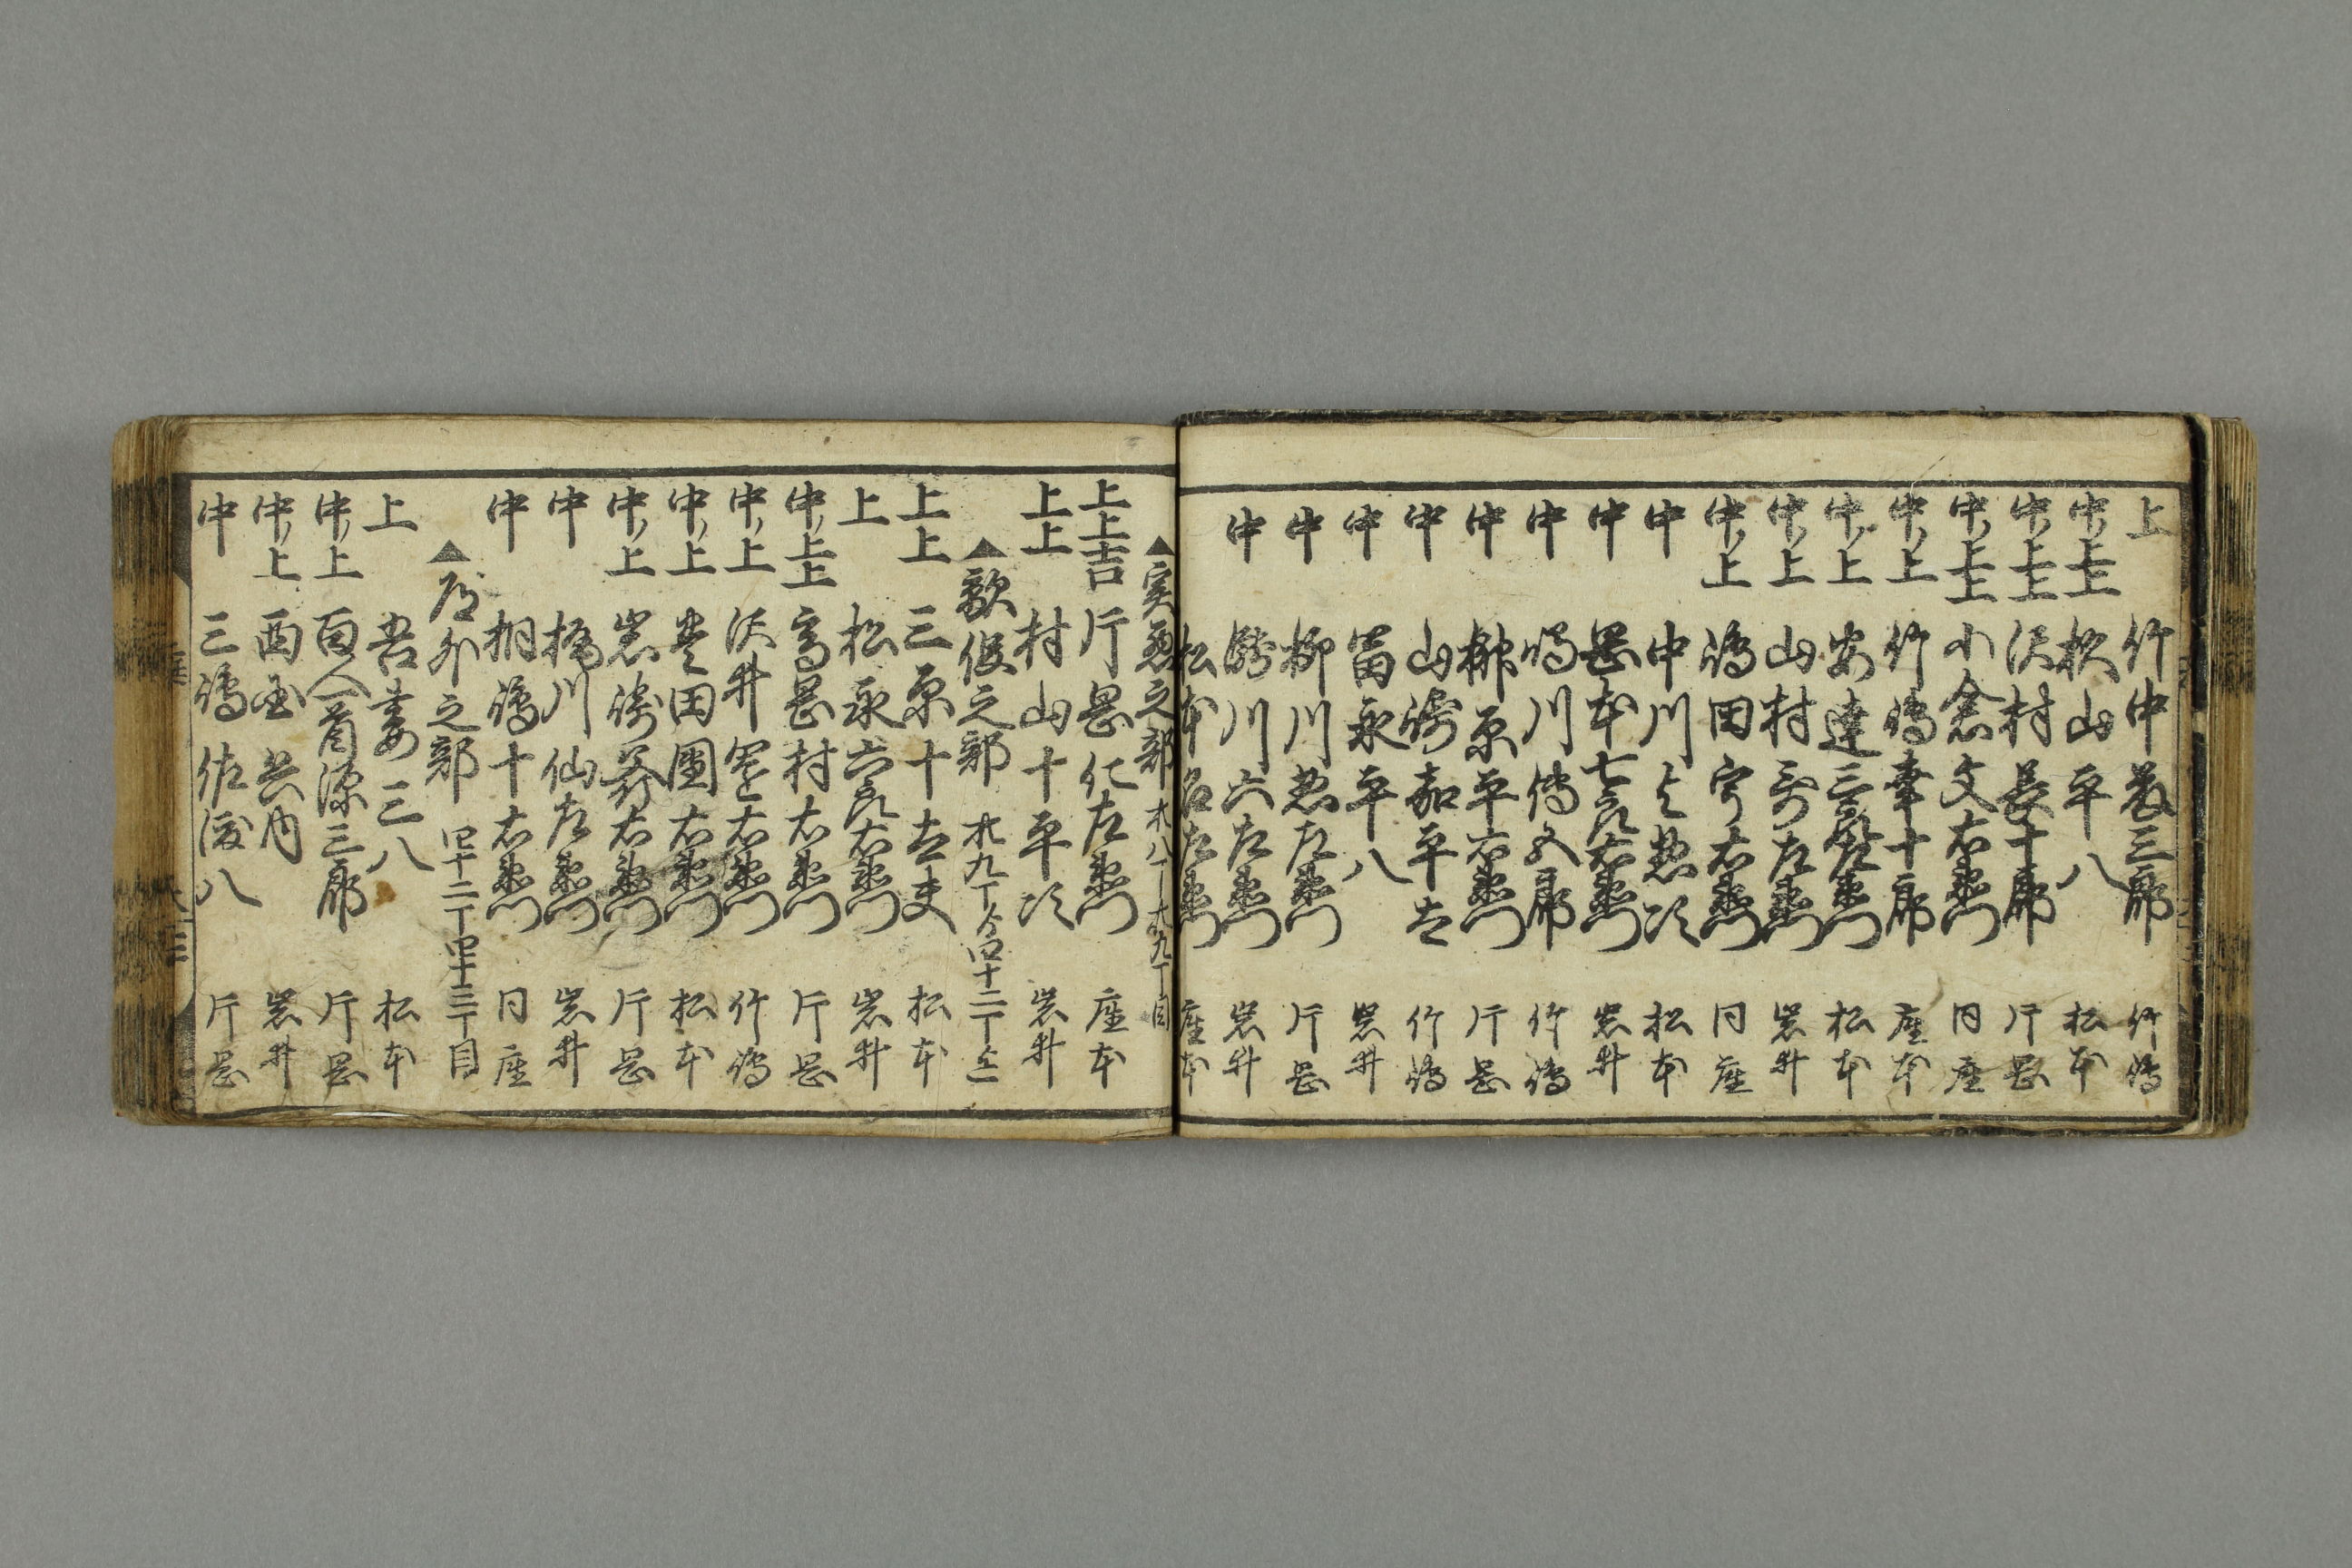 上 竹中藤三郎 竹嶋
中ノ上上 松山平八 松本
中ノ上上 沢村長十郎 片岡
中ノ上上 小倉文右衛門 同座
中ノ上 竹嶋幸十郎 座本
中ノ上 安達三郎左衛門 松本
中ノ上 山村哥左衛門 岩井
中ノ上 嶋田 右衛門 同座
中 中川 惣次 松本
中 岡本七郎右衛門 岩井
中 鳴川傳五郎 竹嶋
中 榊原平右衛門 片岡
中 山崎嘉平太 竹嶋
中 冨永平八 岩井
中 柳川惣左衛門 片岡
中 瀧川六左衛門 岩井
松本名左衛門 座本
▲実悪之部 卅八丁 卅九丁目
上上吉 片岡仁左衛門 座本
上上 村山十平次 岩井
▲敵役之部 卅九丁ゟ四十二丁迄
上上 三原十太夫 松本
上 松永六郎右衛門 岩井
中ノ上上 高岡村右衛門 片岡
中ノ上 沢井 右衛門 竹嶋
中ノ上 豊田園右衛門 松本
中ノ上 岩崎 右衛門 片岡
中 梶川仙左衛門 岩井
中 桐嶋十右衛門 同座
▲道外之部 四十二丁四十三丁目
上 吾妻三八 松本
中ノ上 百人首源三郎 片岡
中ノ上 西国兵内 岩井
中 三嶋佐渡八 片岡